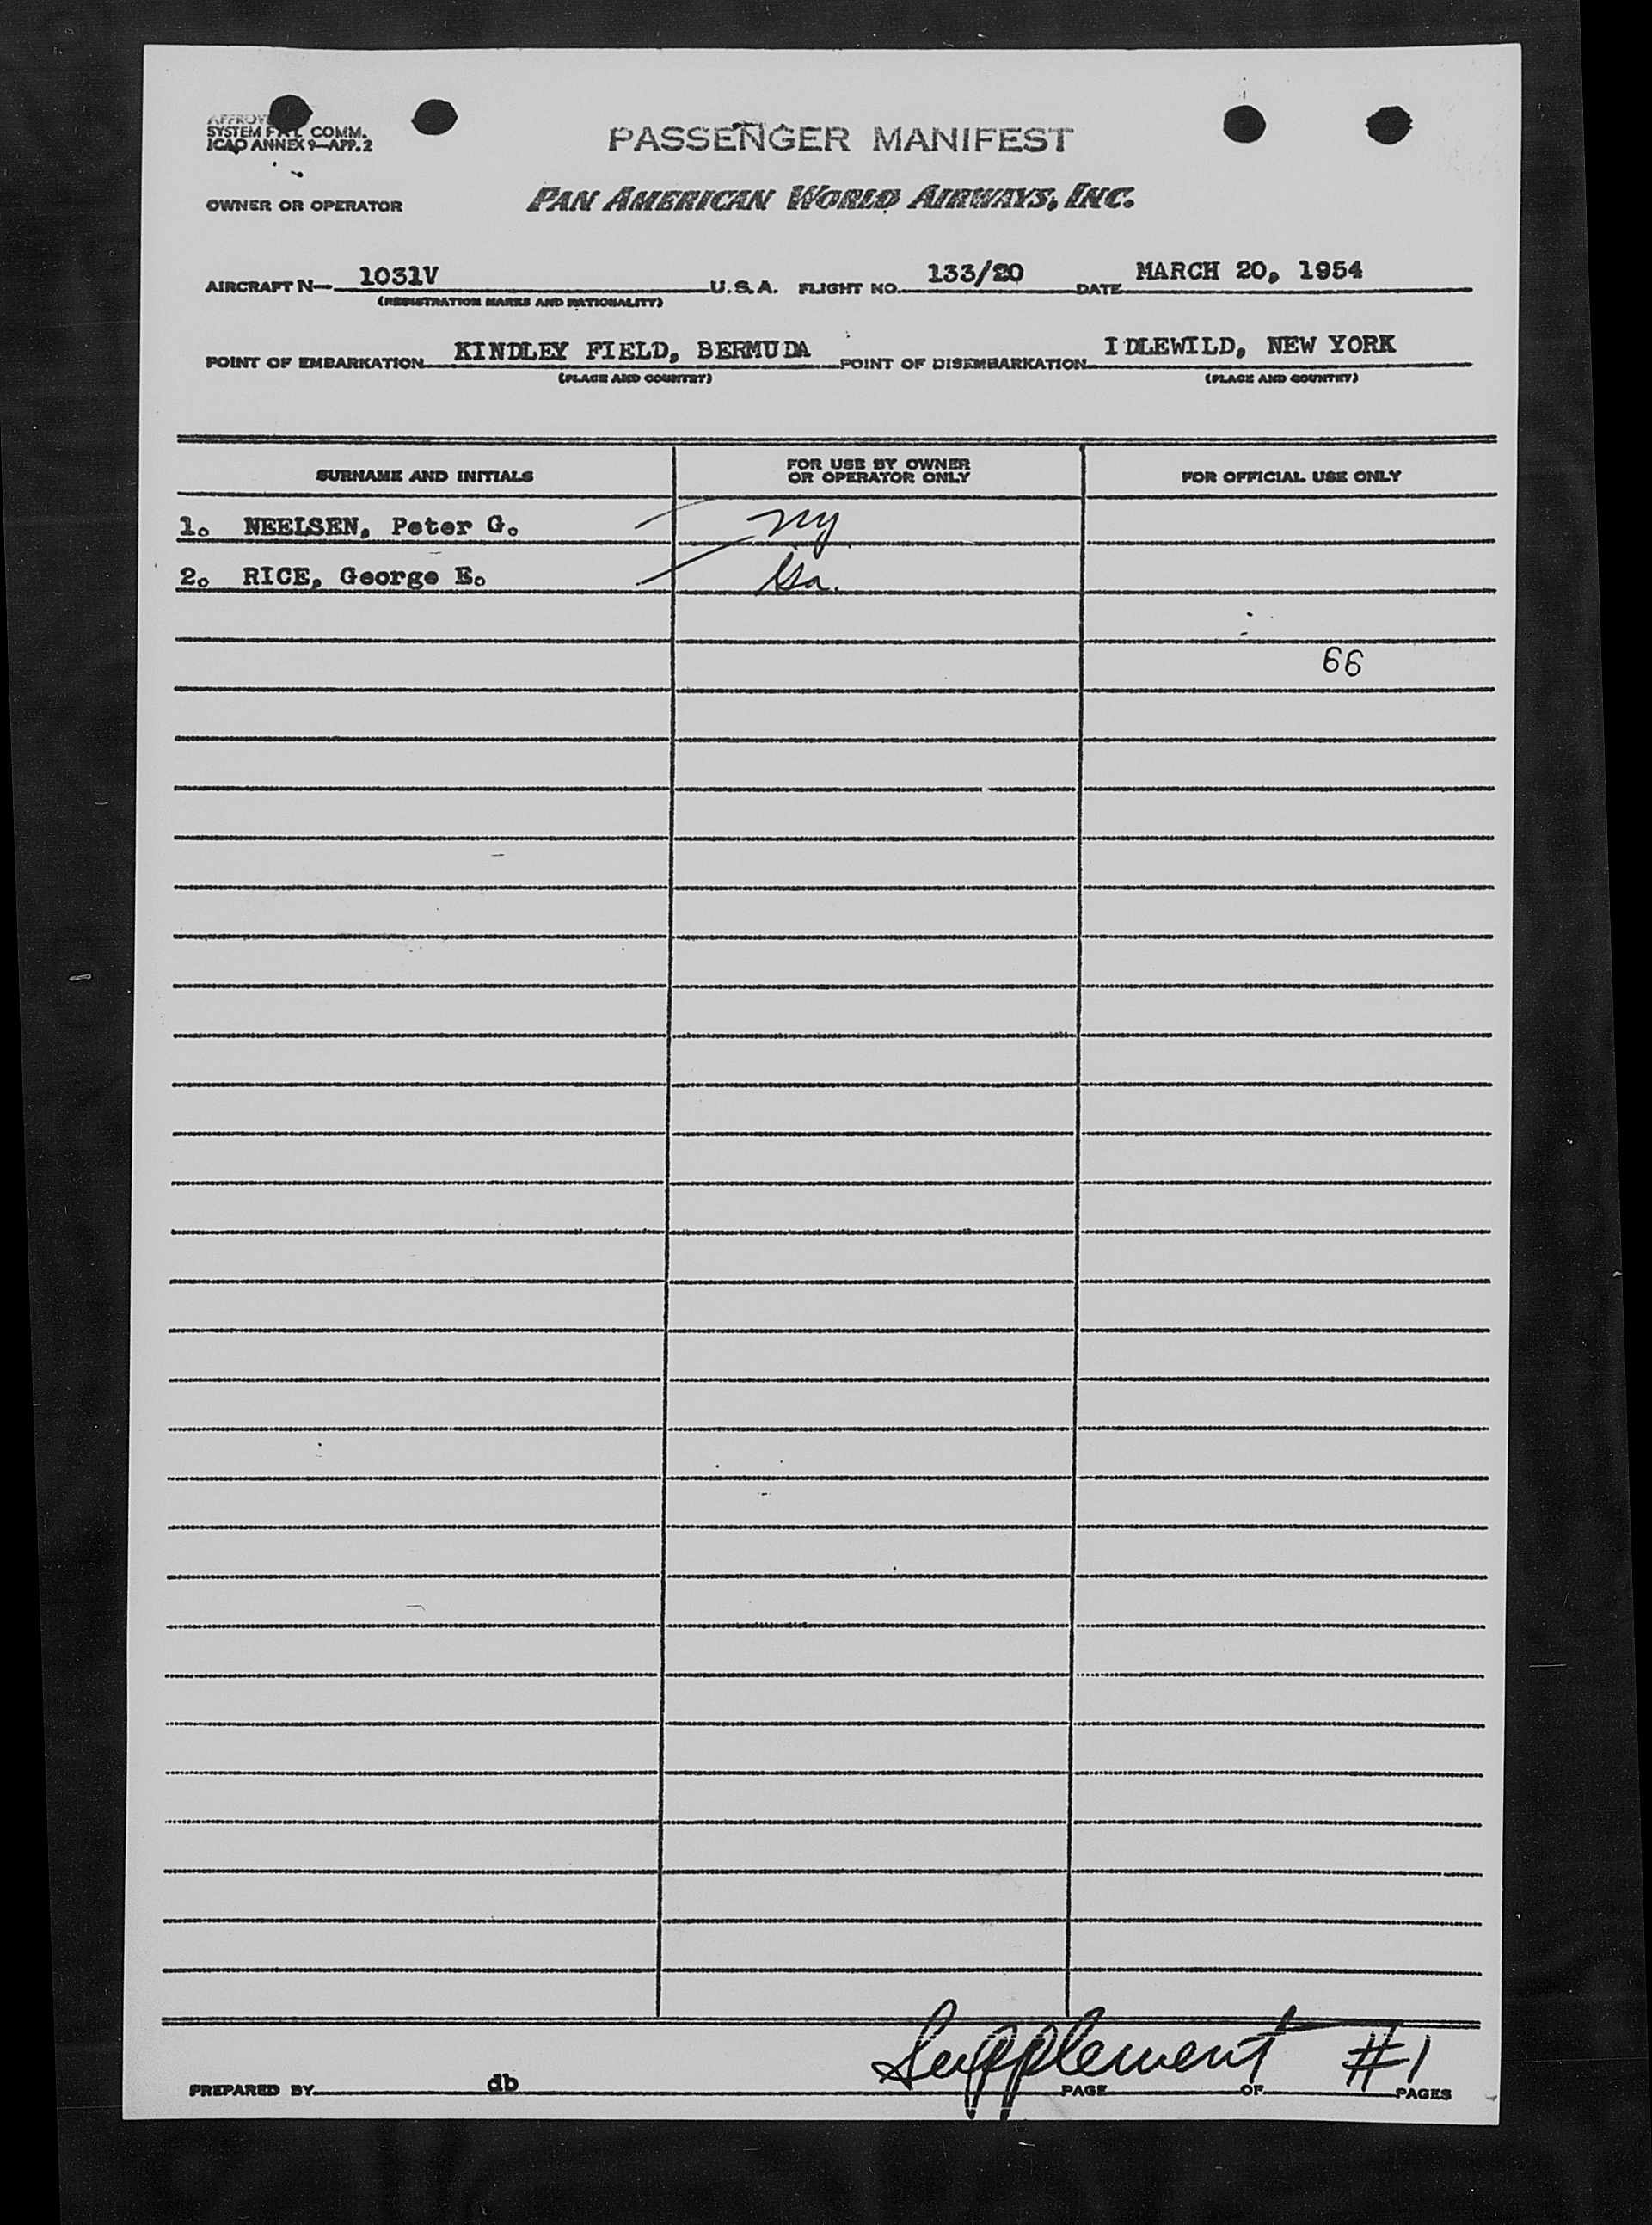 APPROVED
SYSTEM FAL COMM.
ICAO ANNEX 9—APP. 2
PASSENGER MANIFEST
OWNER OR OPERATOR PAN AMERICAN WORLD AIRWAYS, INC.
AIRCRAFT N— 1031V U.S.A. FLIGHT NO. 133/20 DATE MARCH 20, 1954
(REGISTRATION MARKS AND NATIONALITY)
POINT OF EMBARKATION KINDLEY FIELD, BERMUDA POINT OF DISEMBARKATION IDLEWILD, NEW YORK
(PLACE AND COUNTRY) (PLACE AND COUNTRY)
SURNAME AND INITIALS FOR USE BY OWNER OR OPERATOR ONLY FOR OFFICIAL USE ONLY
1. NEELSEN, Peter G. NY
2. RICE, George E. Ga.
66
Supplement #1
PREPARED BY db PAGE OF PAGES